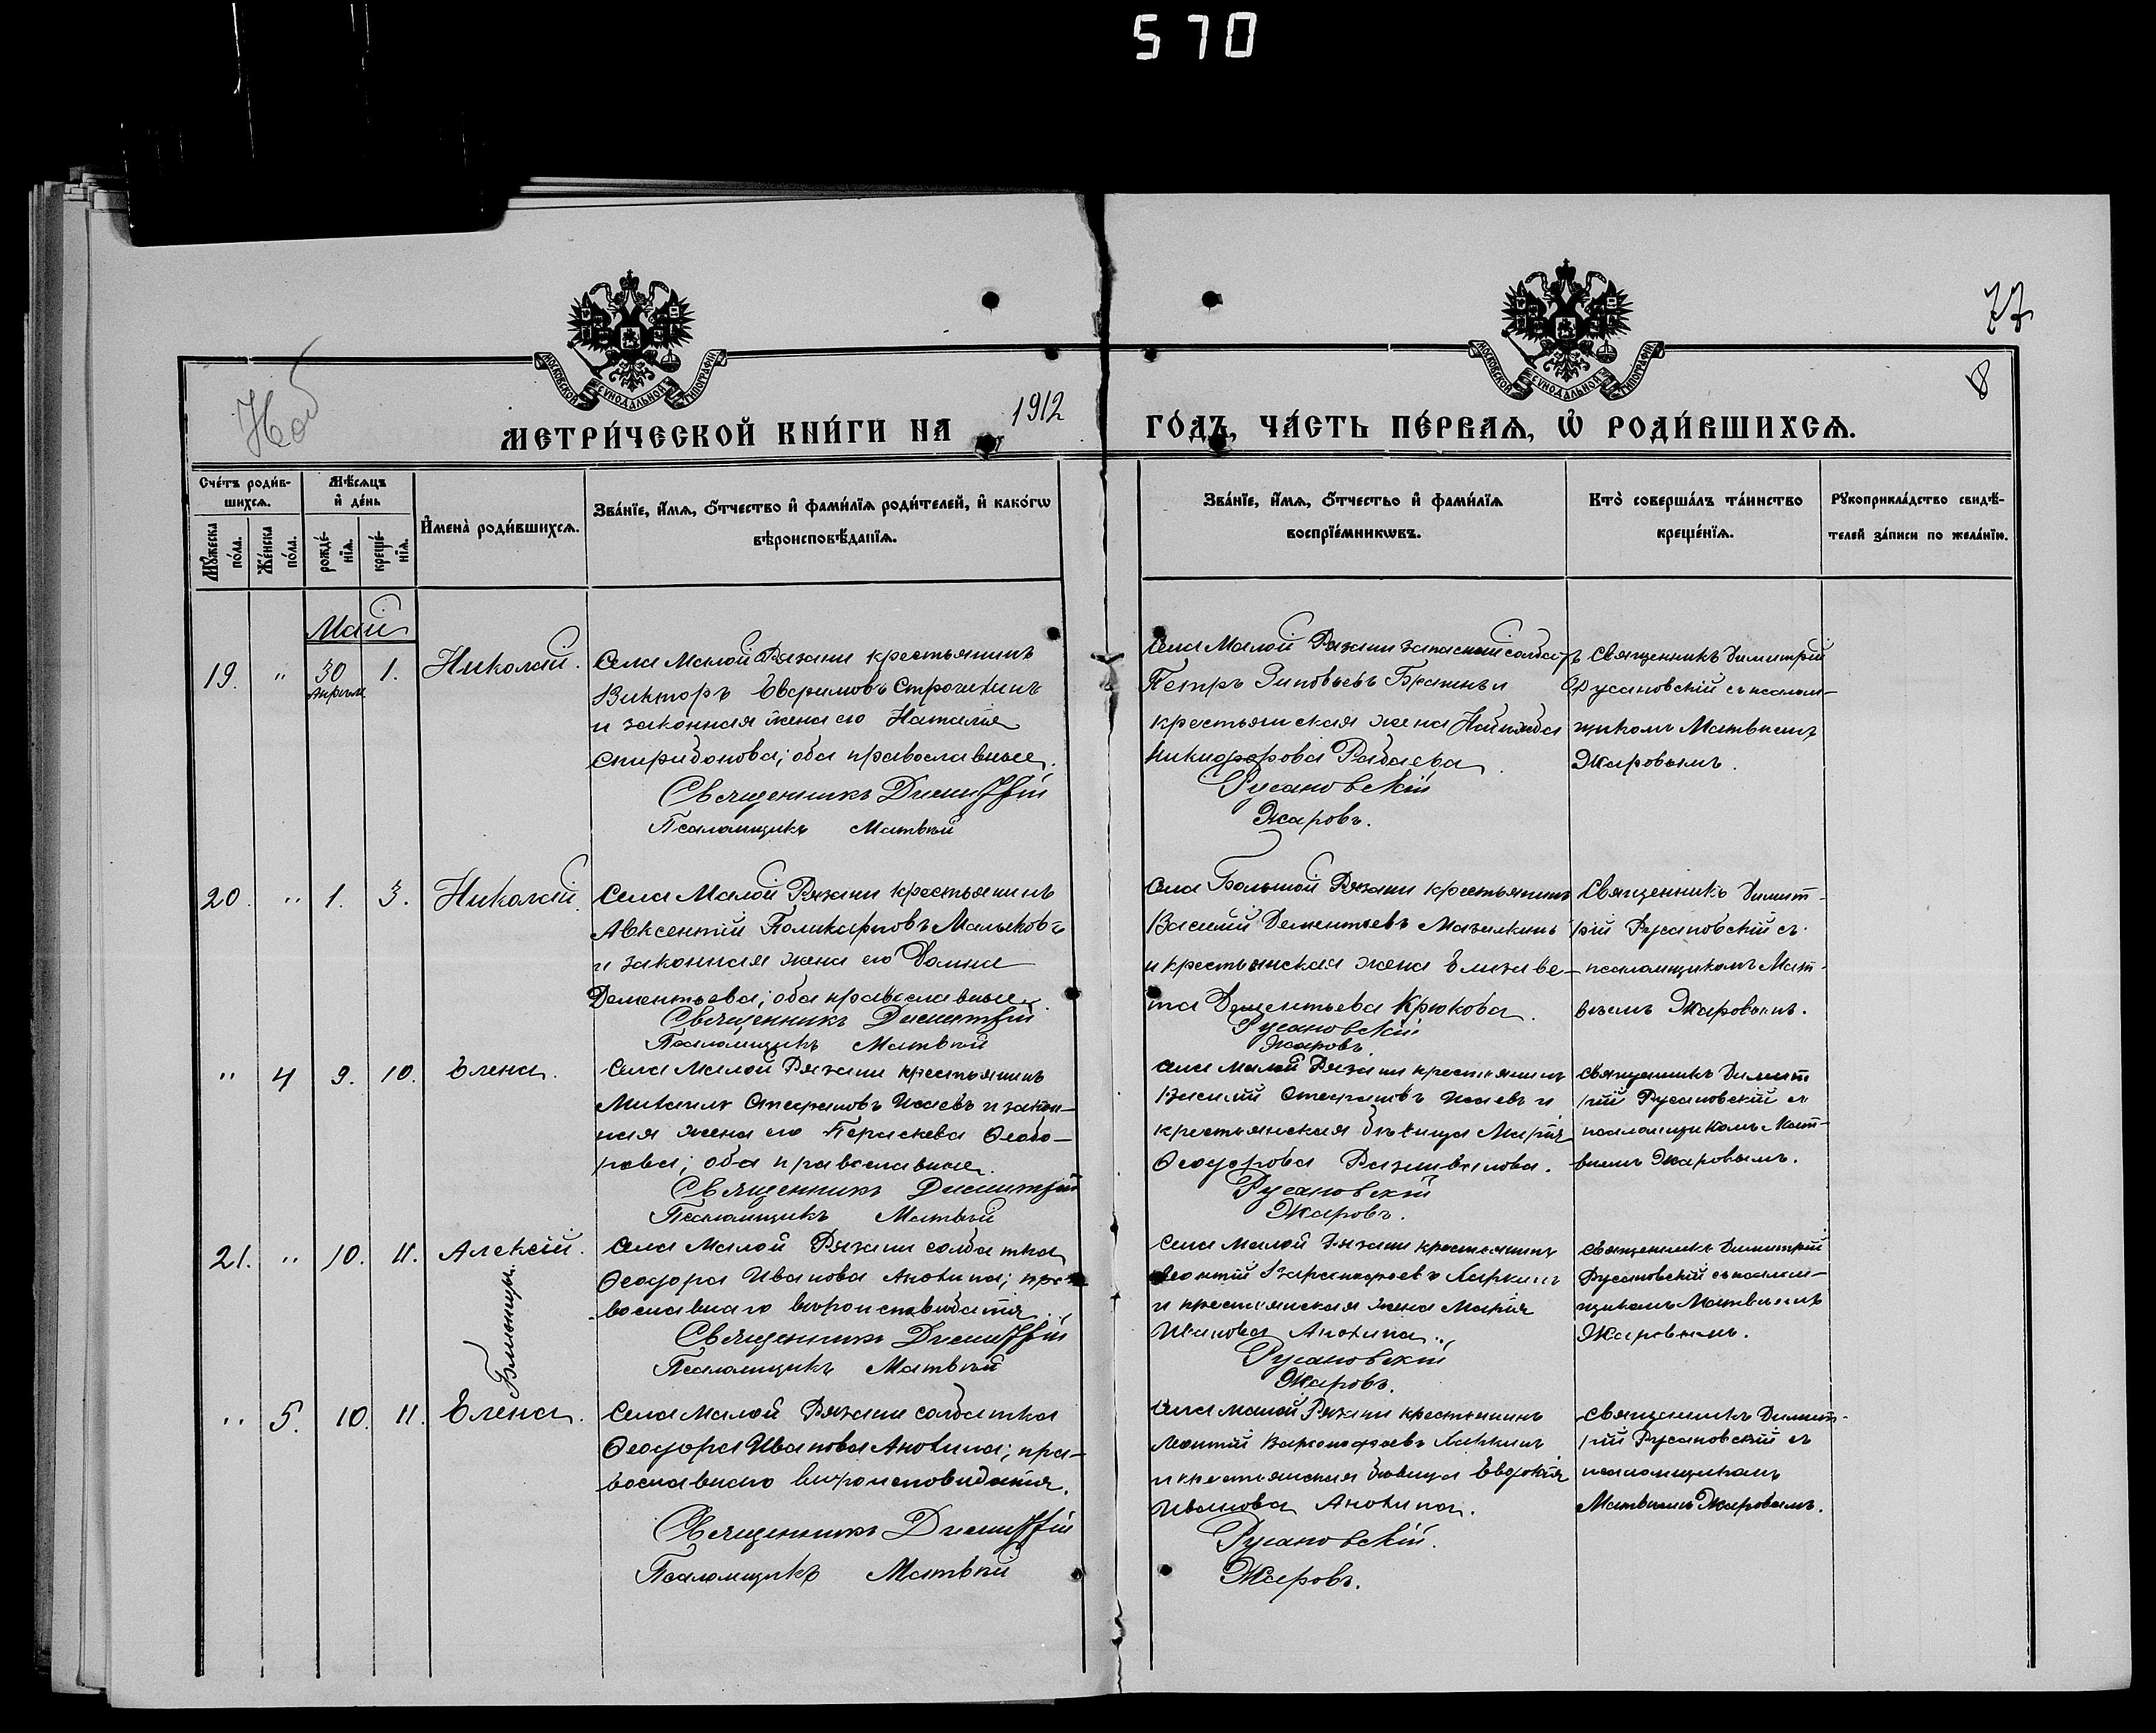 570
77
8
МОСКОВСКОЙ СѴНОДАЛЬНОЙ ТИПОГРАФІИ
МОСКОВСКОЙ СѴНОДАЛЬНОЙ ТИПОГРАФІИ
МЕТРИ́ЧЕСКОЙ КНИ́ГИ НА 1912 ГО́ДЪ, ЧА́СТЬ ПЕ́РВАѦ, Ѡ҆ РОДИ́ВШИХСѦ.
Сче́тъ роди́в-
шихсѧ.
Мꙋ́жеска
по́ла.
Же́нска
по́ла.
Мѣ́сѧцъ
и҆ де́нь
рожде́-
нїѧ.
креще́-
нїѧ.
И҆мена̀ роди́вшихсѧ.
Зва́нїе, и҆́мѧ, ѻ҆́тчество и҆ фами́лїѧ роди́телей, и҆ како́гѡ
вѣроисповѣ́данїѧ.
Зва́нїе, и҆́мѧ, ѻ҆́тчество и҆ фами́лїѧ
воспрїе́мникѡвъ.
Кто̀ соверша́лъ та́инство
креще́нїѧ.
Рꙋкоприкла́дство свидѣ́-
телей за́писи по жела́нїю.
Май
19. " 30 1. Николай.
Апрѣля
Села Малой Рязани крестьянинъ
Викторъ Евфимовъ Строчихинъ
и законная жена его Наталія
Спиридонова; оба православные.
Священникъ Димитрій
Псаломщикъ Матвѣй
Села Малой Рязани запасный солдатъ
Петръ Зиновьевъ и
крестьянская жена
Никифорова Рабаева
Русановскій
Жаровъ.
Священникъ Димитрій
Русановскій съ псалом-
щикомъ Матвѣемъ
Жаровымъ.
20. " 1. 3. Николай.
Села Малой Рязани крестьянинъ
Авксентій Поликарповъ Мальковъ
и законная жена его Домна
Дементьева; оба православные.
Священникъ Димитрій
Псаломщикъ Матвѣй
Села Большой Рязани крестьянинъ
Василій Дементьевъ Мазилкинъ
и крестьянская жена Елизаве-
та Дементьева Крюкова.
Русановскій
Жаровъ.
Священникъ Димит-
рій Русановскій съ
псаломщикомъ Мат-
вѣемъ Жаровымъ.
" 4 9. 10. Елена.
Села Малой Рязани крестьянинъ
Михаилъ Стефановъ Исаевъ и закон-
ная жена его Параскева Ѳеодо-
рова; оба православные.
Священникъ Димитрій
Псаломщикъ Матвѣй
Села Малой Рязани крестьянинъ
Василій Стефановъ Исаевъ и
крестьянская дѣвица Марія
Ѳеодорова
Русановскій
Жаровъ.
Священникъ Димит
рій Русановскій съ
псаломщикомъ Мат-
вѣемъ Жаровымъ.
21. " 10. 11. Алексій.
Близнецы
Села Малой Рязани солдатка
Ѳеодора Иванова Анохина; пра-
вославнаго вѣроисповѣданія.
Священникъ Димитрій
Псаломщикъ Матвѣй
Села Малой Рязани крестьянинъ
Леонтій Ларкинъ
и крестьянская жена Марія
Иванова Анохина.
Русановскій
Жаровъ.
Священникъ Димитрій
Русановскій съ псалом-
щикомъ Матвѣемъ
Жаровымъ.
" 5. 10. 11. Елена.
Села Малой Рязани солдатка
Ѳеодора Иванова Анохина; пра-
вославнаго вѣроисповѣданія.
Священникъ Димитрій
Псаломщикъ Матвѣй
Села Малой Рязани крестьянинъ
Леонтій Ларкинъ
и крестьянская дѣвица Евдокія
Иванова Анохина.
Русановскій.
Жаровъ.
Священникъ Димит-
рій Русановскій съ
псаломщикомъ
Матвѣемъ Жаровымъ.